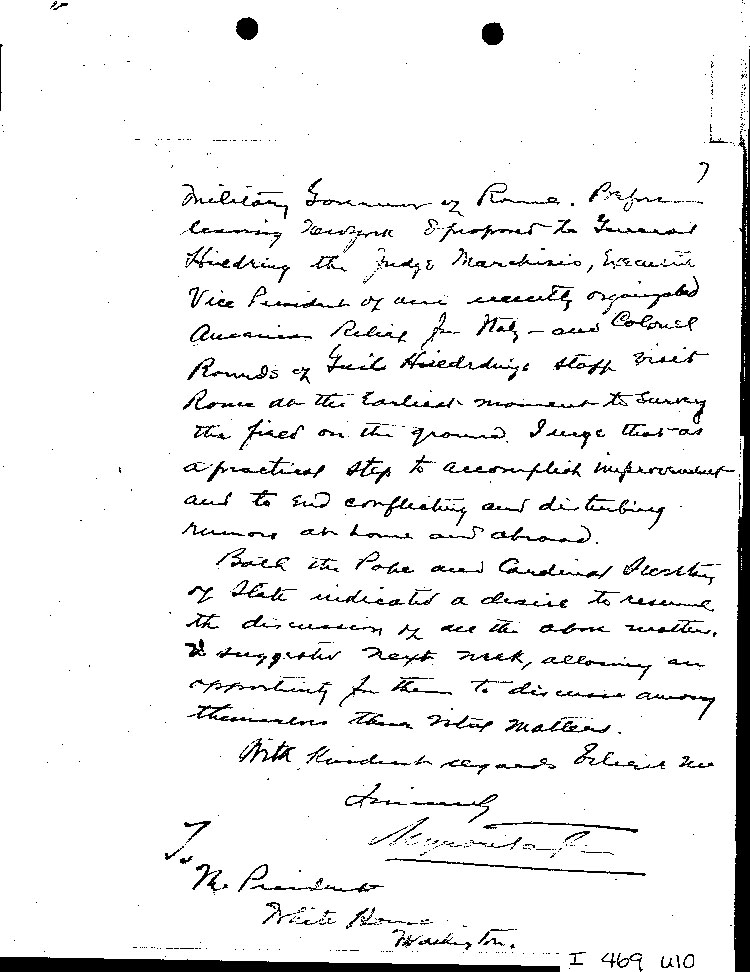 7
Military Governor of Rome. Before
leaving New York I proposed to General
Hilldring the Judge Marchisio, Executive
Vice President of our recently organized
American Relief for Italy – and Colonel
Rounds of Genl. Hilldrings staff visit
Rome at the Earliest moment to Survey
the field on the ground. I urge that as
a practical step to accomplish improvement
and to End conflicting and disturbing
rumors at home and abroad.
Both the Pope and Cardinal Secretary
of State indicated a desire to resume
the discussion of all the above matters.
I suggested next week, allowing an
opportunity for them to discuss among
themselves these vital matters.
With Kindest regards Believe me
Sincerely
Myron Taylor
To
The President
White House
Washington.
I 469 u10